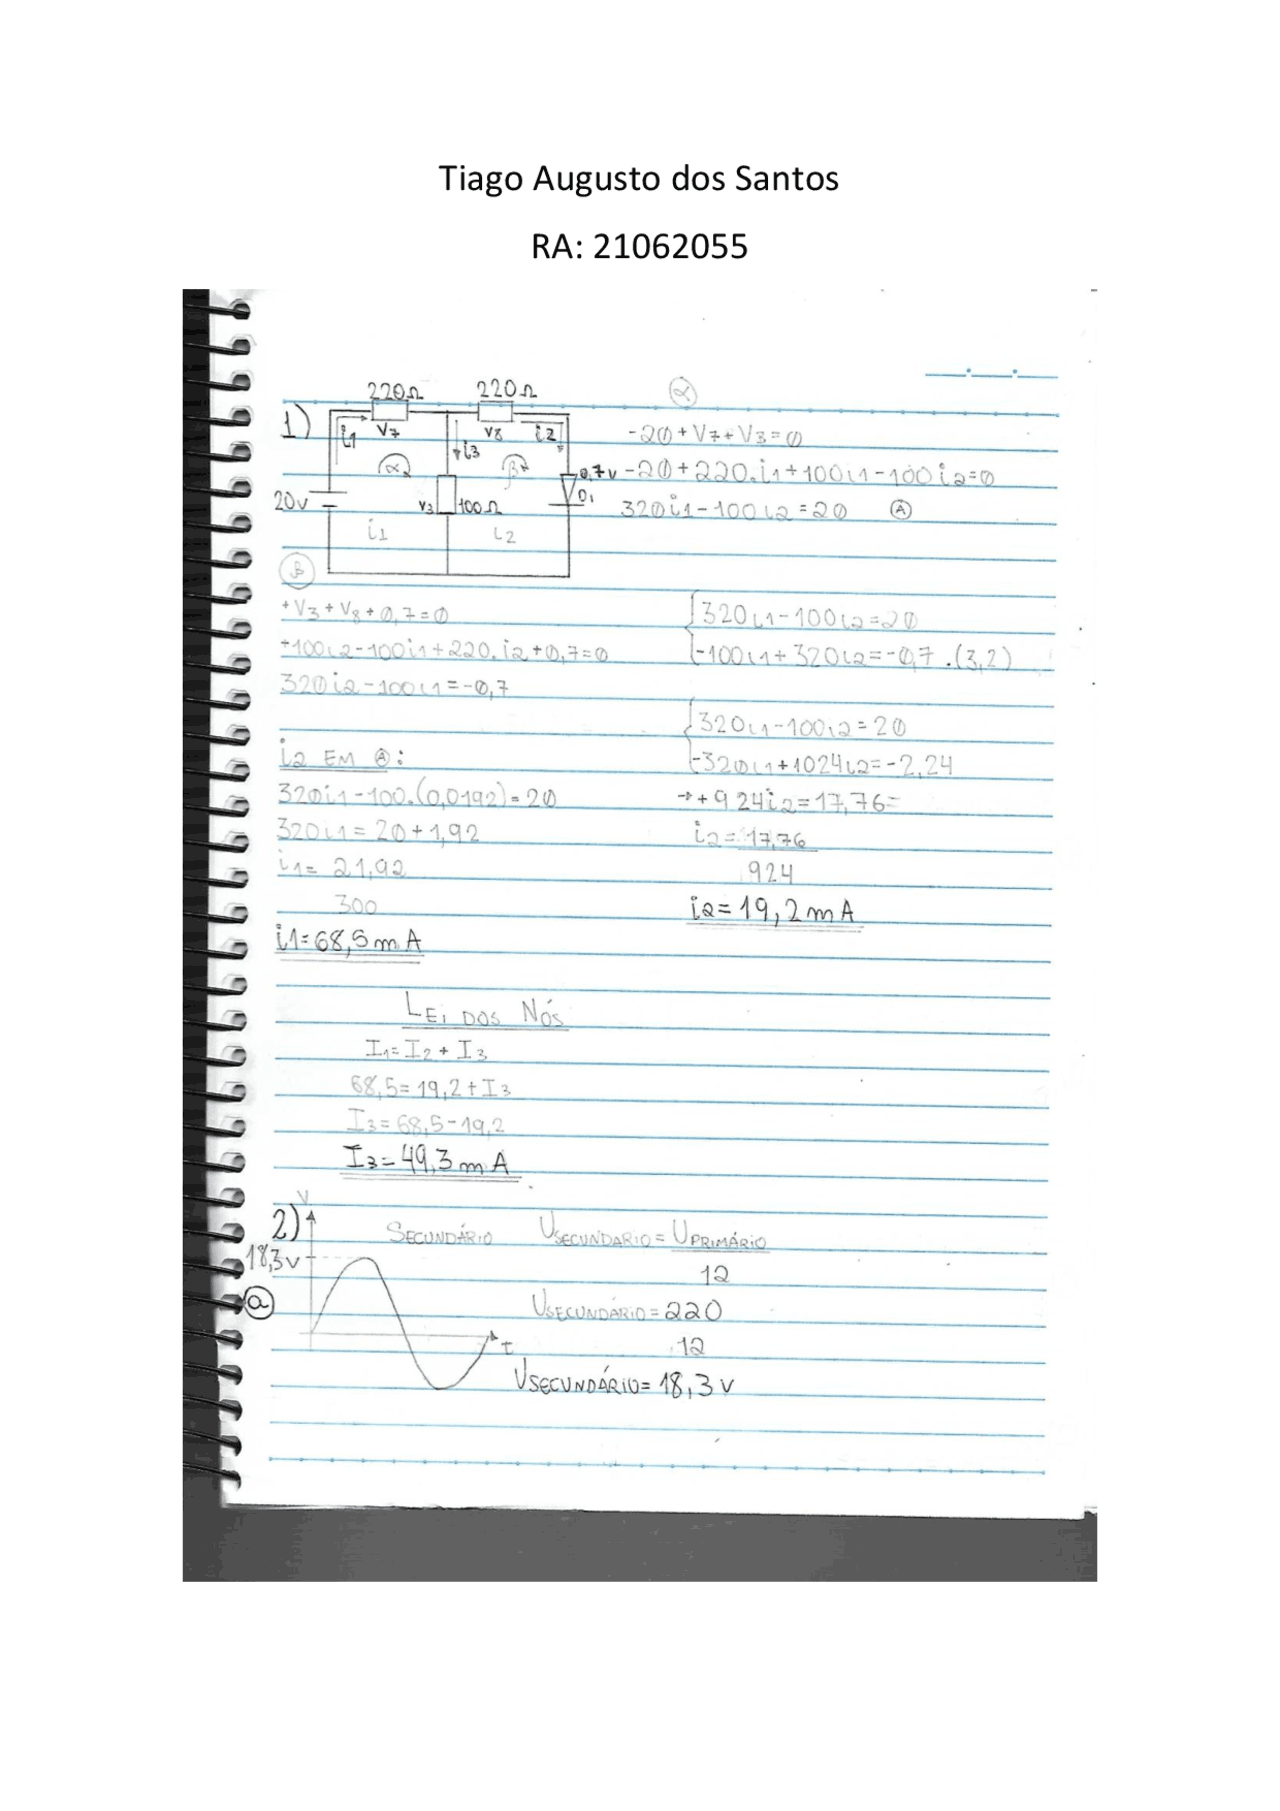 Tiago Augusto dos Santos
RA: 21062055
1)
220Ω 220Ω
i1 V7 V8 i2
i3
α β
0,7v
D1
20v
V3 100Ω
i1 i2
α
-20+V7+V3=0
-20+220.i1+100i1-100i2=0
320i1-100i2=20 A
β
+V3+V8+0,7=0
+100i2-100i1+220.i2+0,7=0
320i2-100i1=-0,7
320i1-100i2=20
-100i1+320i2=-0,7.(3,2)
320i1-100i2=20
-320i1+1024i2=-2,24
→+924i2=17,76=
i2=17,76
924
i2=19,2mA
i2 EM A:
320i1-100.(0,0192)=20
320i1=20+1,92
i1=21,92
300
i1=68,5mA
LEI DOS NÓS
I1=I2+I3
68,5=19,2+I3
I3=68,5-19,2
I3=49,3mA
2)
V
18,3v
a
t
SECUNDÁRIO USECUNDARIO=UPRIMÁRIO
12
USECUNDÁRIO=220
12
USECUNDÁRIO=18,3v